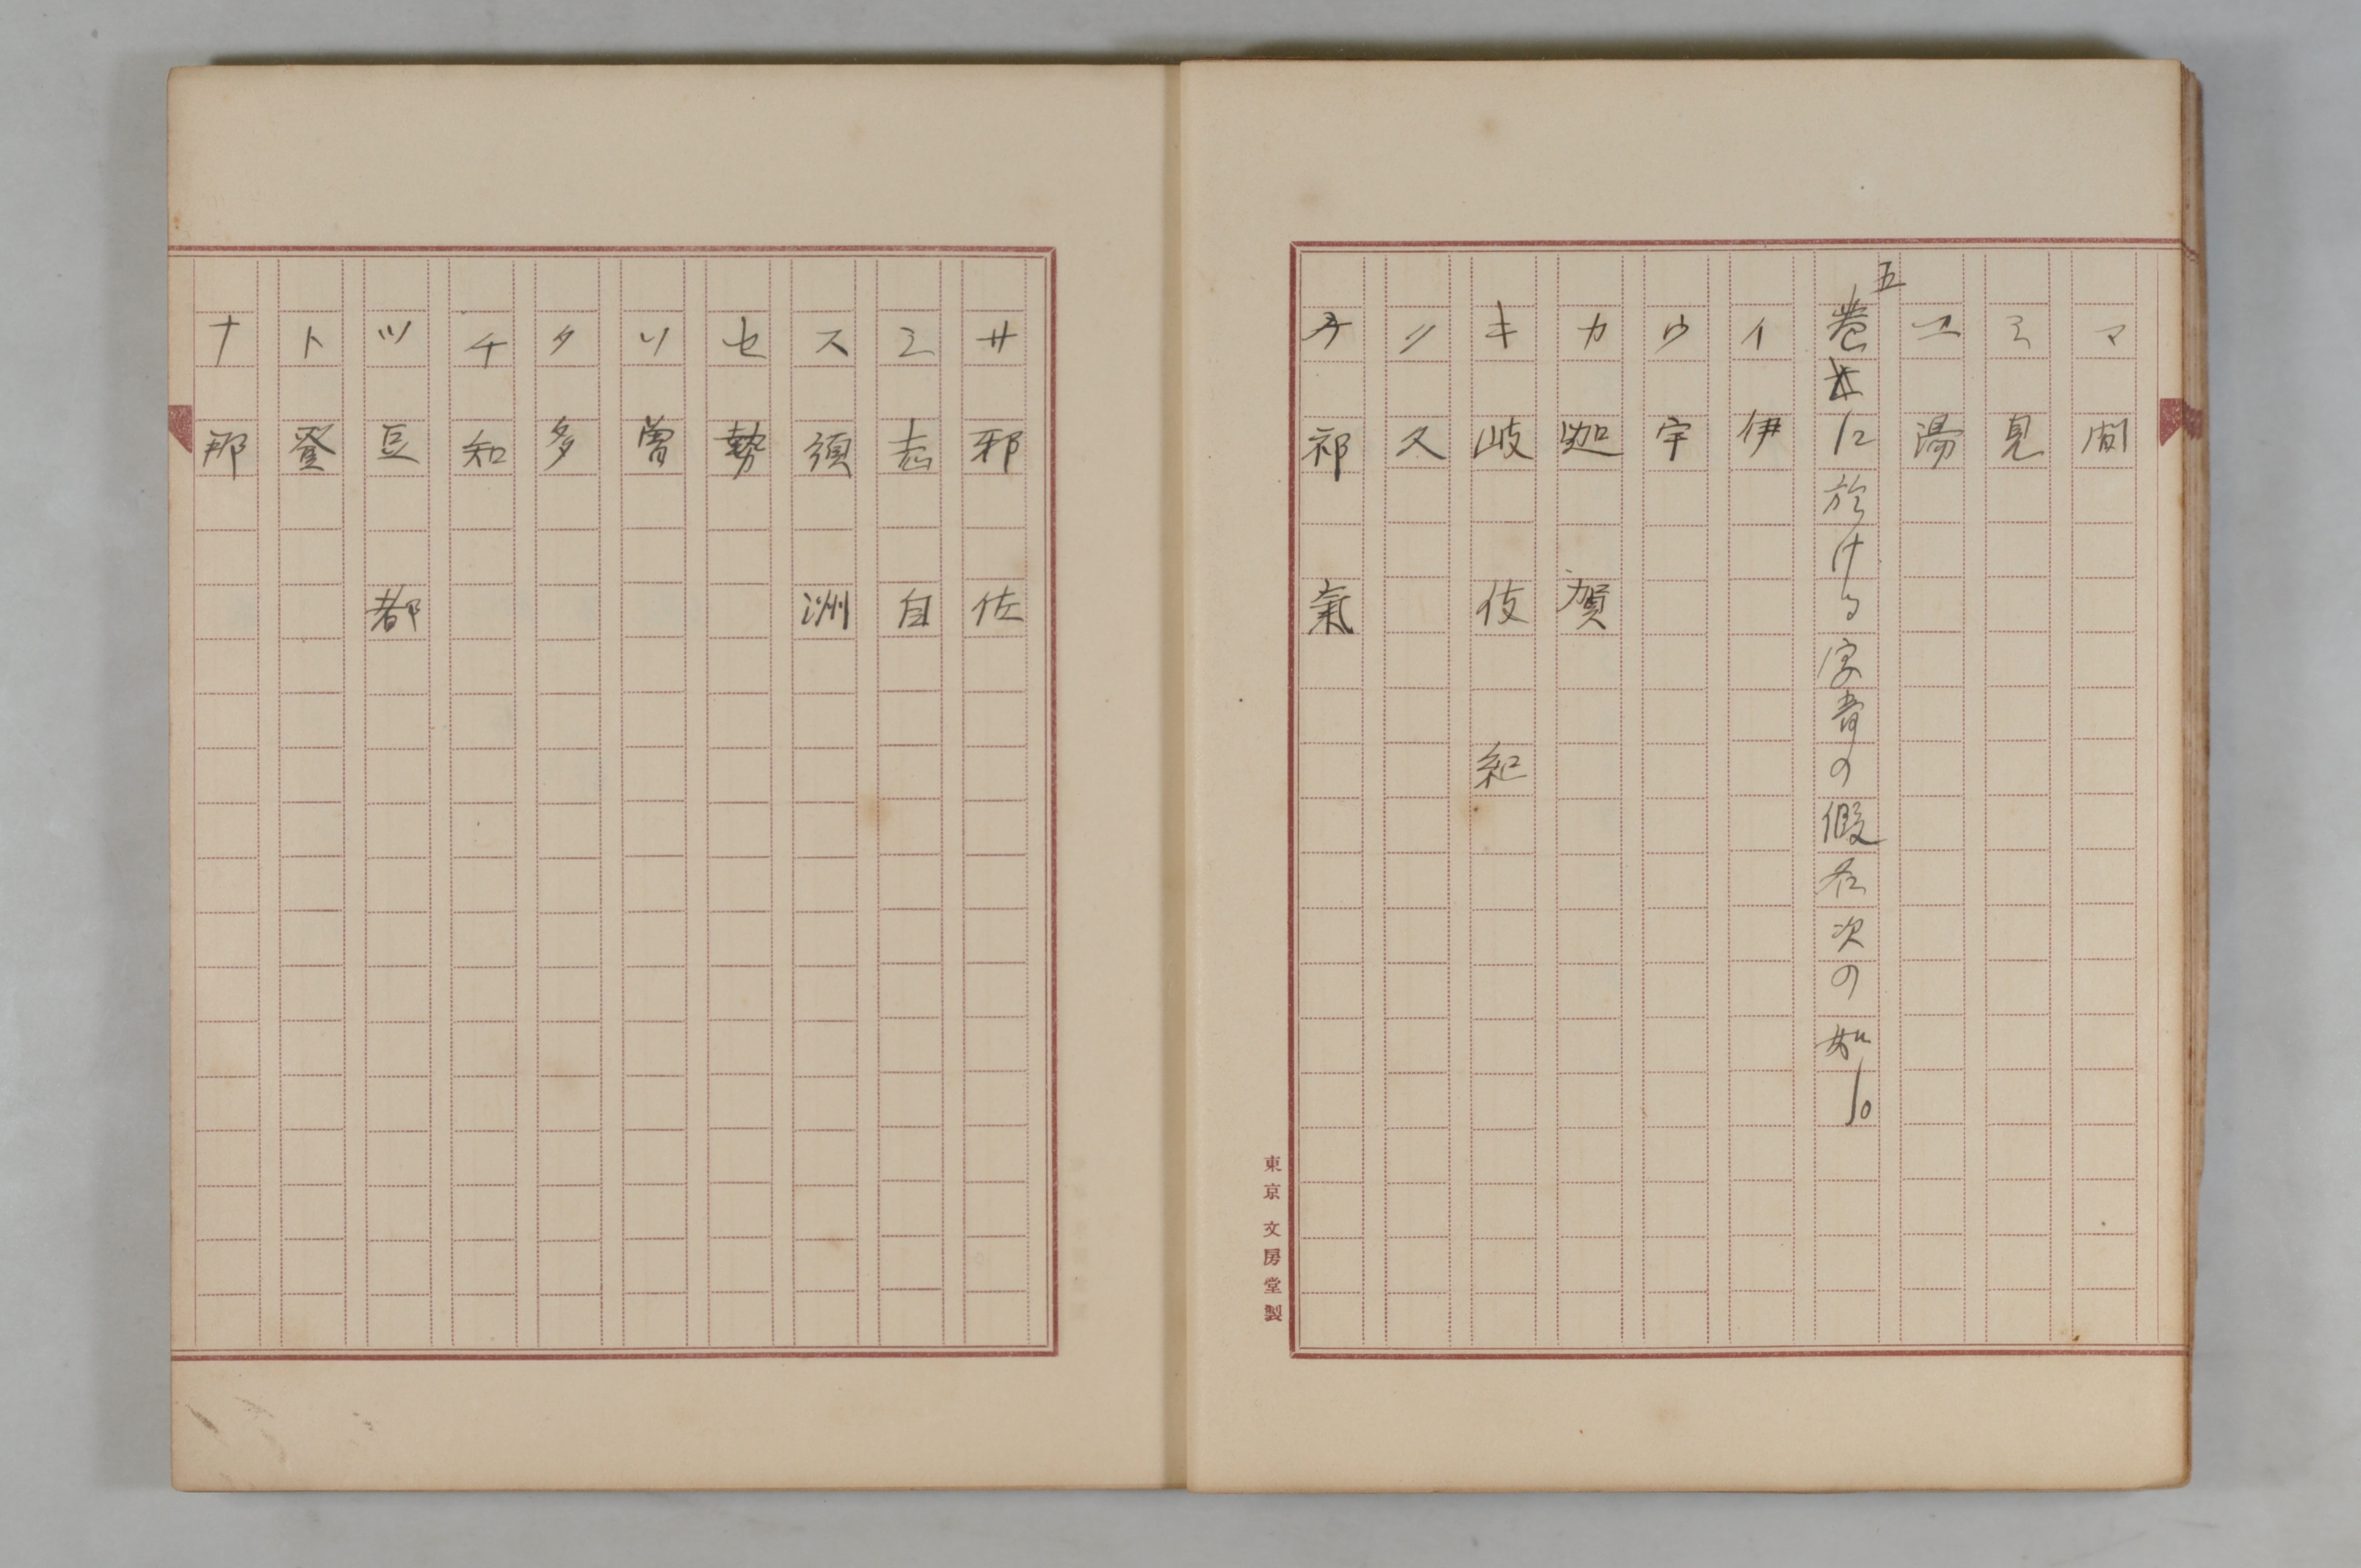 マ 間
ミ 見
ユ 湯
五巻に於ける字音の假名次の如し。
イ 伊
ウ 宇
カ 迦 賀
キ 岐 伎 紀
ク 久
ケ 祁 氣
東京 文房堂製
サ 邪 佐
シ 志 自
ス 須 洲
セ 勢
ソ 曽
タ 多
チ 知
ツ 豆 都
ト 登
ナ 那